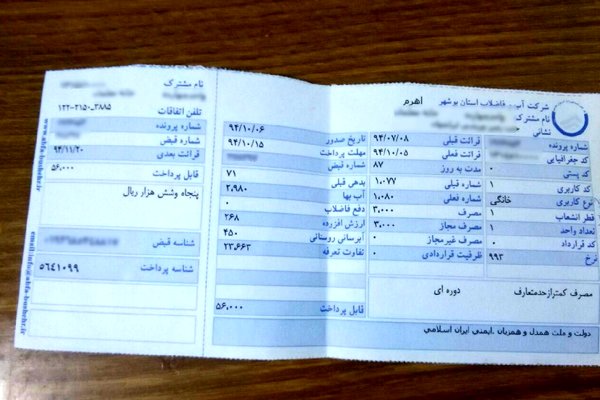 شرکت آب فاضلاب استان بوشهر اهرم
نام مشترک
نشانی
شماره پرونده
کد جغرافیایی
کد پستی ۰
کد کاربری ۱
نوع کاربری خانگی
قطر انشعاب ۱
تعداد واحد ۱
کد قرارداد ۰
نرخ ۹۹۳
قرائت قبلی ۹۴/۰۷/۰۸
قرائت فعلی ۹۴/۱۰/۰۵
مدت به روز ۸۷
شماره قبلی ۱,۰۷۷
شماره فعلی ۱,۰۸۰
مصرف ۳,۰۰۰
مصرف مجاز ۳,۰۰۰
مصرف غیرمجاز ۰
ظرفیت قراردادی ۰
تاریخ صدور ۹۴/۱۰/۰۶
مهلت پرداخت ۹۴/۱۰/۱۵
شماره قبض
بدهی قبلی ۷۱
آب بها ۲,۹۸۰
دفع فاضلاب ۰
ارزش افزوده ۲۶۸
آبرسانی روستائی ۴۵۰
تفاوت تعرفه ۲۳,۶۶۳
قابل پرداخت ۵۶,۰۰۰
مصرف کمترازحدمتعارف دوره ای
دولت و ملت همدل و همزبان .ایمنی ایران اسلامی
نام مشترک
تلفن اتفاقات ۱۲۲-۲۱۵۰-۳۸۸۵
شماره پرونده
شماره قبض
قرائت بعدی ۹۴/۱۱/۲۰
قابل پرداخت ۵۶,۰۰۰
پنجاه وشش هزار ریال
شناسه قبض
شناسه پرداخت ۵۶۴۱۰۹۹